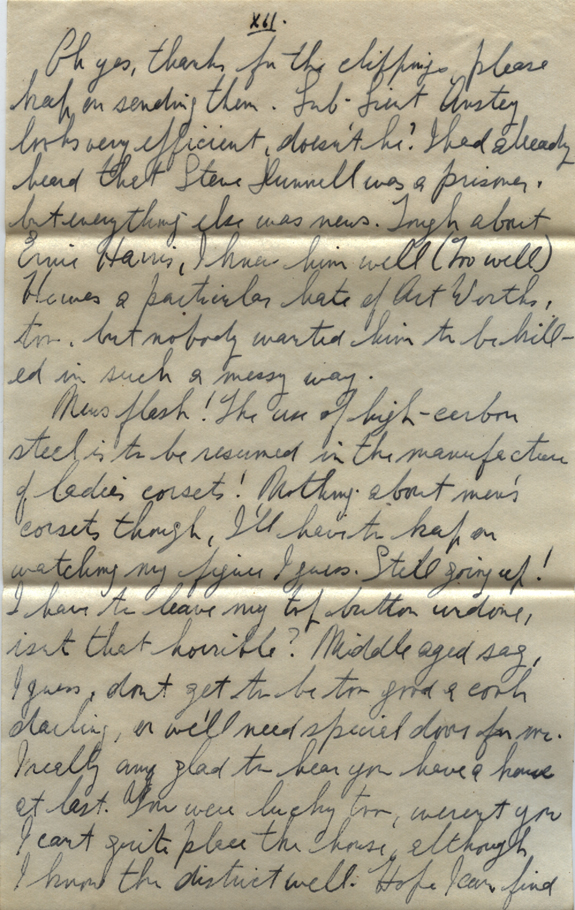 XII.
Oh yes, thanks for the clippings, please
keep on sending them. Sub-Lieut Anstey
looks very efficient, doesn't he? I had already
heard that Steve Dunnell was a prisoner,
but everything else was news. Tough about
Ernie Harris, I knew him well (Too well)
He was a particular hate of Art Worths,
too, but nobody wanted him to be kill-
ed in such a messy way.
News flash! The use of high-carbon
steel is to be resumed in the manufacture
of ladies corsets! Nothing about men's
corsets though, I'll have to keep on
watching my figure I guess. Still going up!
I have to leave my top button undone,
isn't that horrible? Middle aged sag,
I guess, don't get to be too good a cook
darling, or we'll need special doors for me.
I really am glad to hear you have a house
at last. You were lucky too, weren't you
I can't quite place the house, although
I know the district well. Hope I can find